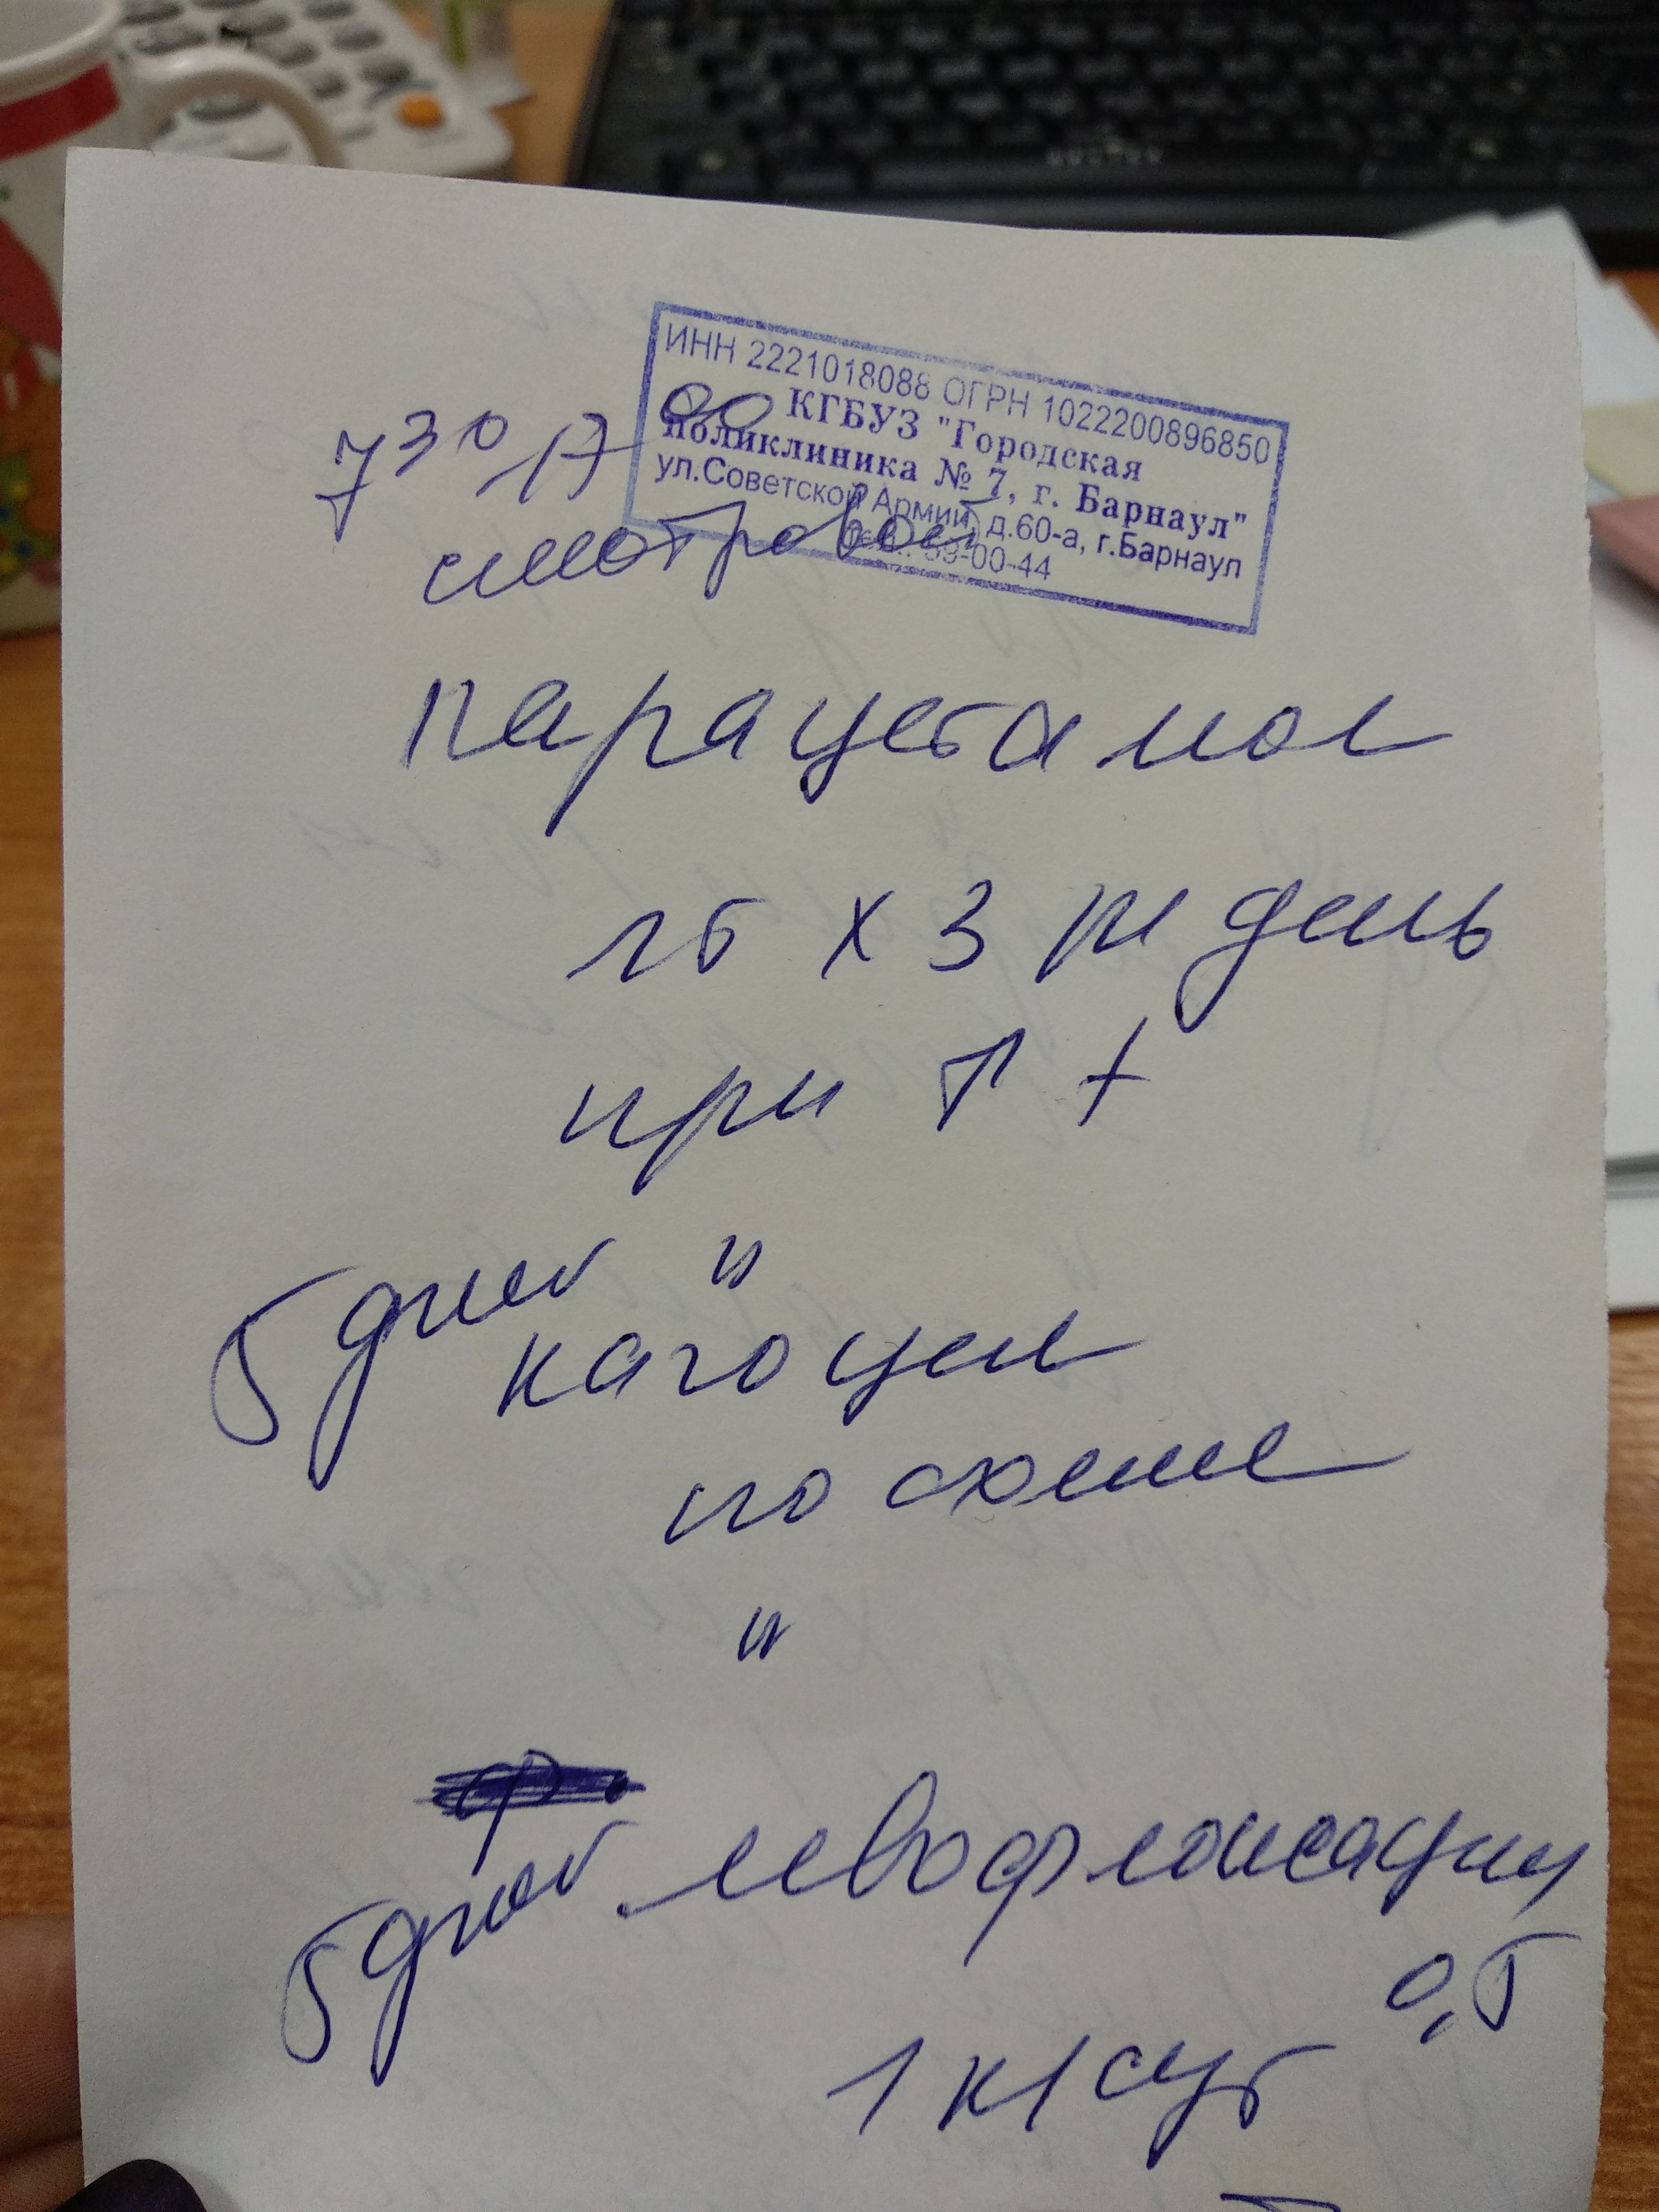 ИНН 2221018088 ОГРН 1022200896850
КГБУЗ "Городская
поликлиника № 7, г. Барнаул"
ул.Советской Армии, д.60-а, г.Барнаул
7 30 17 00
смотровой
парацетамол
1т х 3 р д день
при ↑ t
"
5 дней кагоцел
по схеме
"
5 дней левофлоксацин
0,5
1 х 1 сут